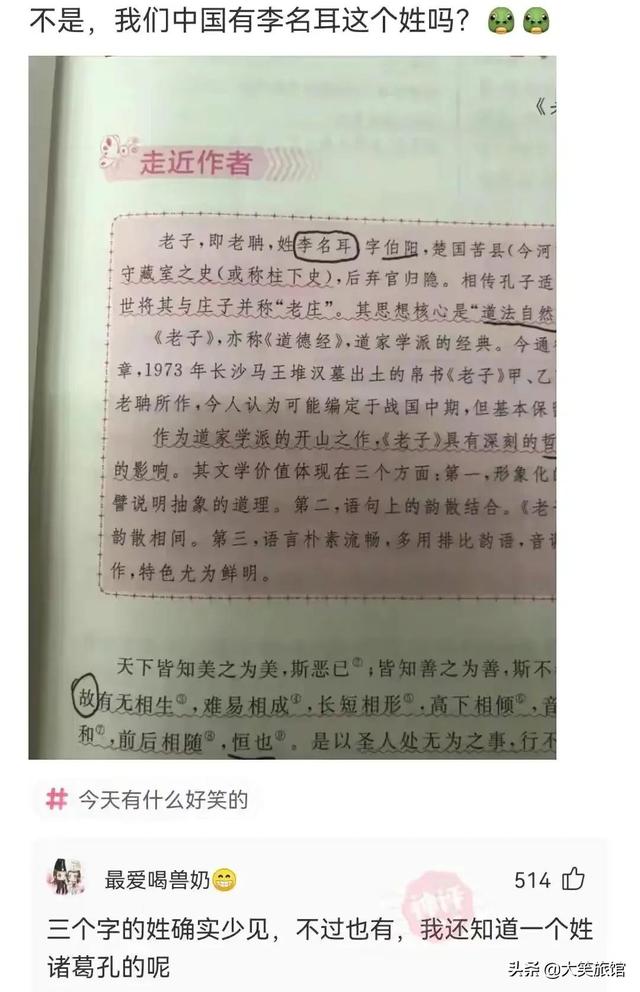 不是，我们中国有李名耳这个姓吗？
走近作者
老子,即老聃,姓李名耳 字伯阳,楚国苦县(今河
守藏室之史(或称柱下史),后弃官归隐。相传孔子适
世将其与庄子并称“老庄”。其思想核心是“道法自然
《老子》,亦称《道德经》,道家学派的经典。今通
章,1973 年长沙马王堆汉墓出土的帛书《老子》甲、乙
老聃所作,今人认为可能编定于战国中期,但基本保
作为道家学派的开山之作,《老子》具有深刻的哲
的影响。其文学价值体现在三个方面:第一,形象化
譬说明抽象的道理。第二,语句上的韵散结合。《老
韵散相间。第三,语言朴素流畅,多用排比韵语,音
作,特色尤为鲜明。
天下皆知美之为美,斯恶已②;皆知善之为善,斯不
故有无相生③,难易相成④,长短相形⑤,高下相倾⑥,音
和⑦,前后相随⑧,恒也⑨。是以圣人处无为之事,行不
# 今天有什么好笑的
最爱喝兽奶😁
514
三个字的姓确实少见，不过也有，我还知道一个姓
诸葛孔的呢
头条 @大笑旅馆